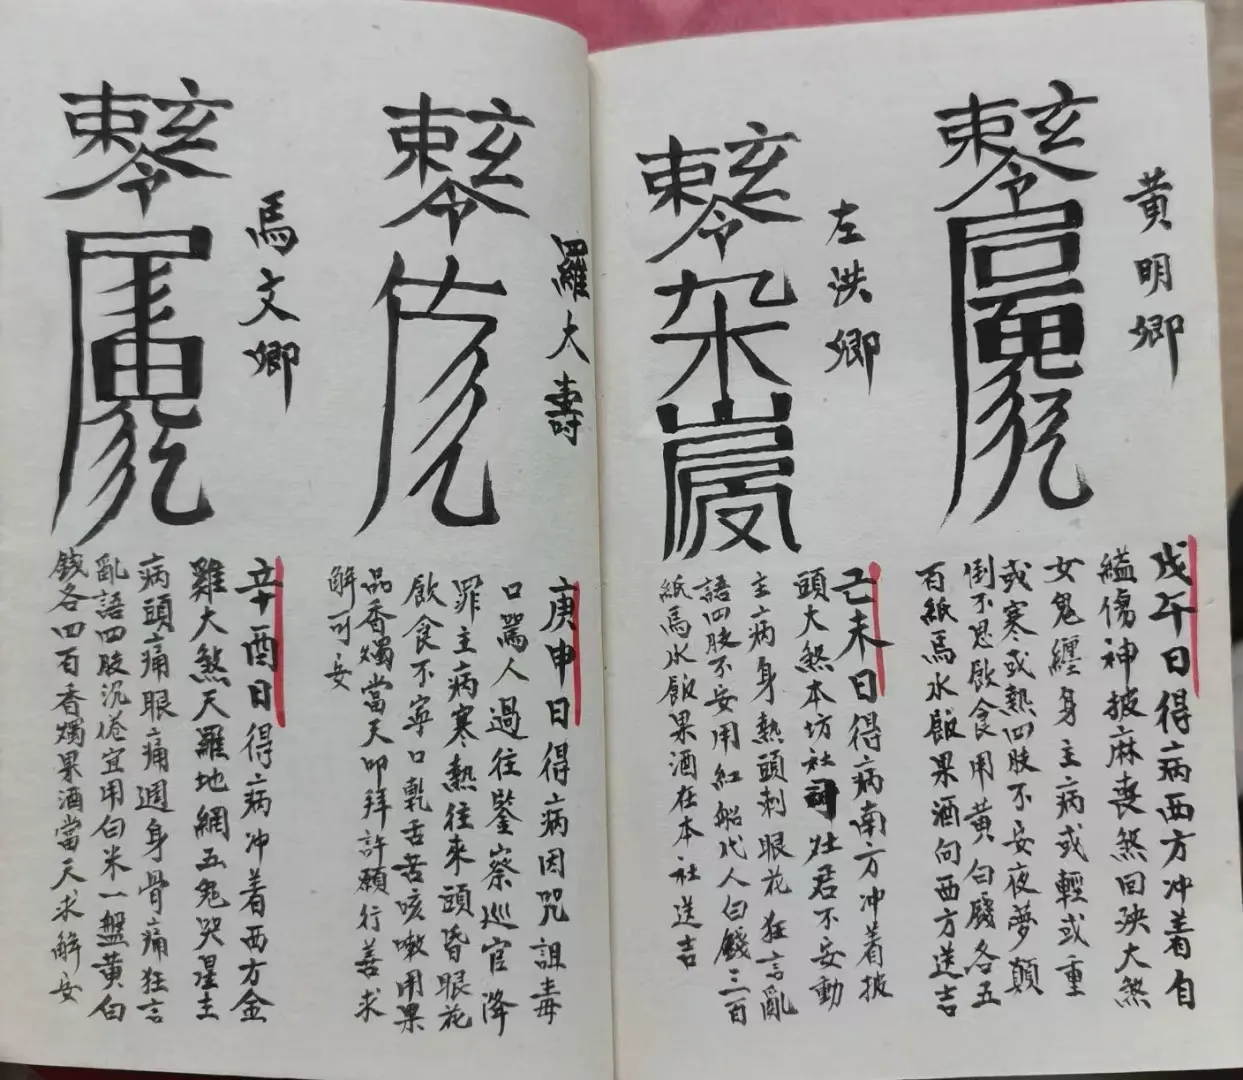 黃明卿
戊午日得病西方冲着自
縊傷神披麻喪煞回殃大煞
女鬼纏身主病或輕或重
或寒或熱四肢不安夜夢顛
倒不思飲食用黃白錢各五
百紙馬水飯果酒向西方送吉
左洪卿
己未日得病南方冲着披
頭大煞本坊社司灶君不安動
主病身熱頭刺眼花狂言亂
語四肢不安用紅船代人白錢三百
紙馬水飯果酒在本社送吉
羅大壽
庚申日得病因咒詛毒
口罵人過往鑒察巡官降
罪主病寒熱往來頭昏眼花
飲食不寧口乾舌苦咳嗽用果
品香燭當天叩拜許願行善求
解可安
馬文卿
辛酉日得病冲着西方金
雞大煞天羅地網五鬼哭星主
病頭痛眼痛週身骨痛狂言
亂語四肢沉倦宜用白米一盤黃白
錢各四百香燭果酒當天求解安